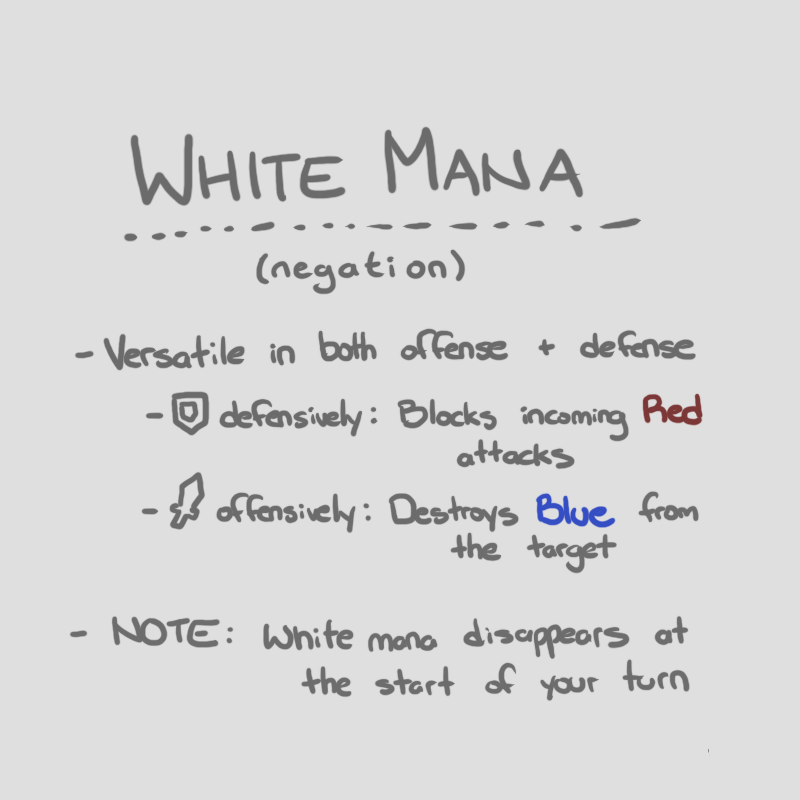 WHITE MANA
(negation)
- Versatile in both offense + defense
- defensively: Blocks incoming Red
attacks
- offensively: Destroys Blue from
the target
- NOTE: White mana disappears at
the start of your turn